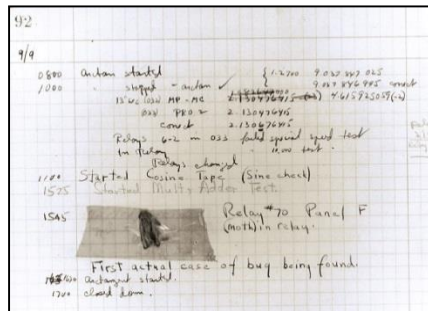 92
9/9
0800 Antan started
1000 " stopped - antan ✓ { 1.2700 9.037 847 025
9.037 846 995 correct
13" UC (032) MP - MC 2.130476415 (-3) 4.615925059 (-2)
(033) PRO 2 2.130476415
correct 2.130676415
Relays 6-2 in 033 failed special speed test
in relay 10.000 test.
Relays changed
1100 Started Cosine Tape (Sine check)
1525 Started Multi Adder Test.
1545 Relay #70 Panel F
(moth) in relay.
First actual case of bug being found.
antangent started.
1700 closed down.